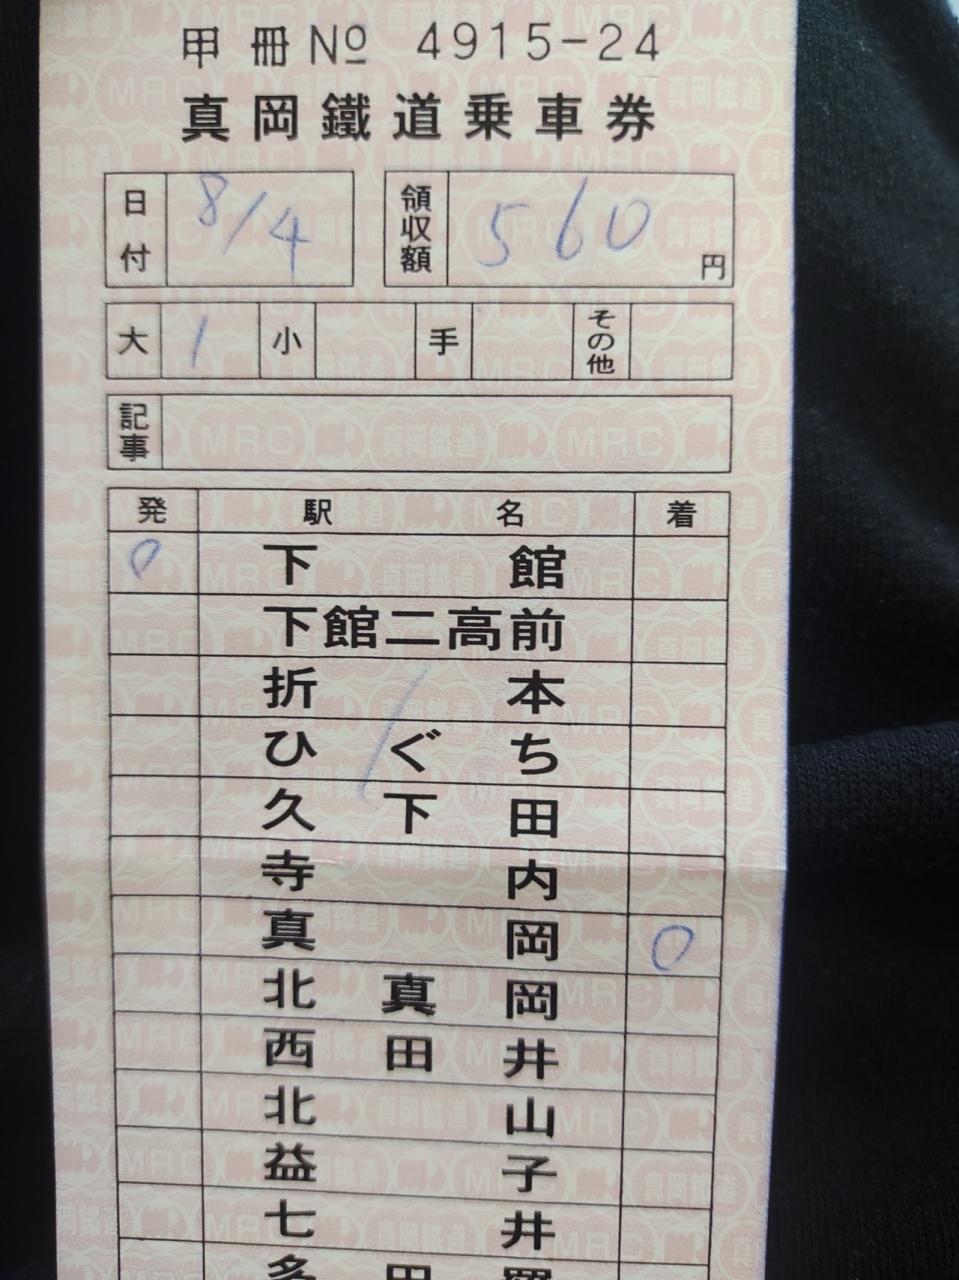 甲冊№ 4915-24
真岡鐵道乗車券
日付 8/4 領収額 560円
大 1 小 手 その他
記事
発 駅名 着
0 下館
下館二高前
折本
ひぐち
久下田
寺内
真岡 0
北真岡
西田井
北山
益子
七井
多田羅